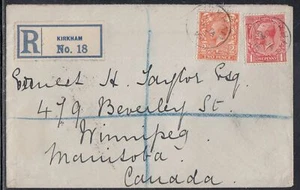 R
KIRKHAM
No. 18
Ernest H. Taylor Esq.
479 Beverley St.
Winnipeg
Manitoba
Canada.